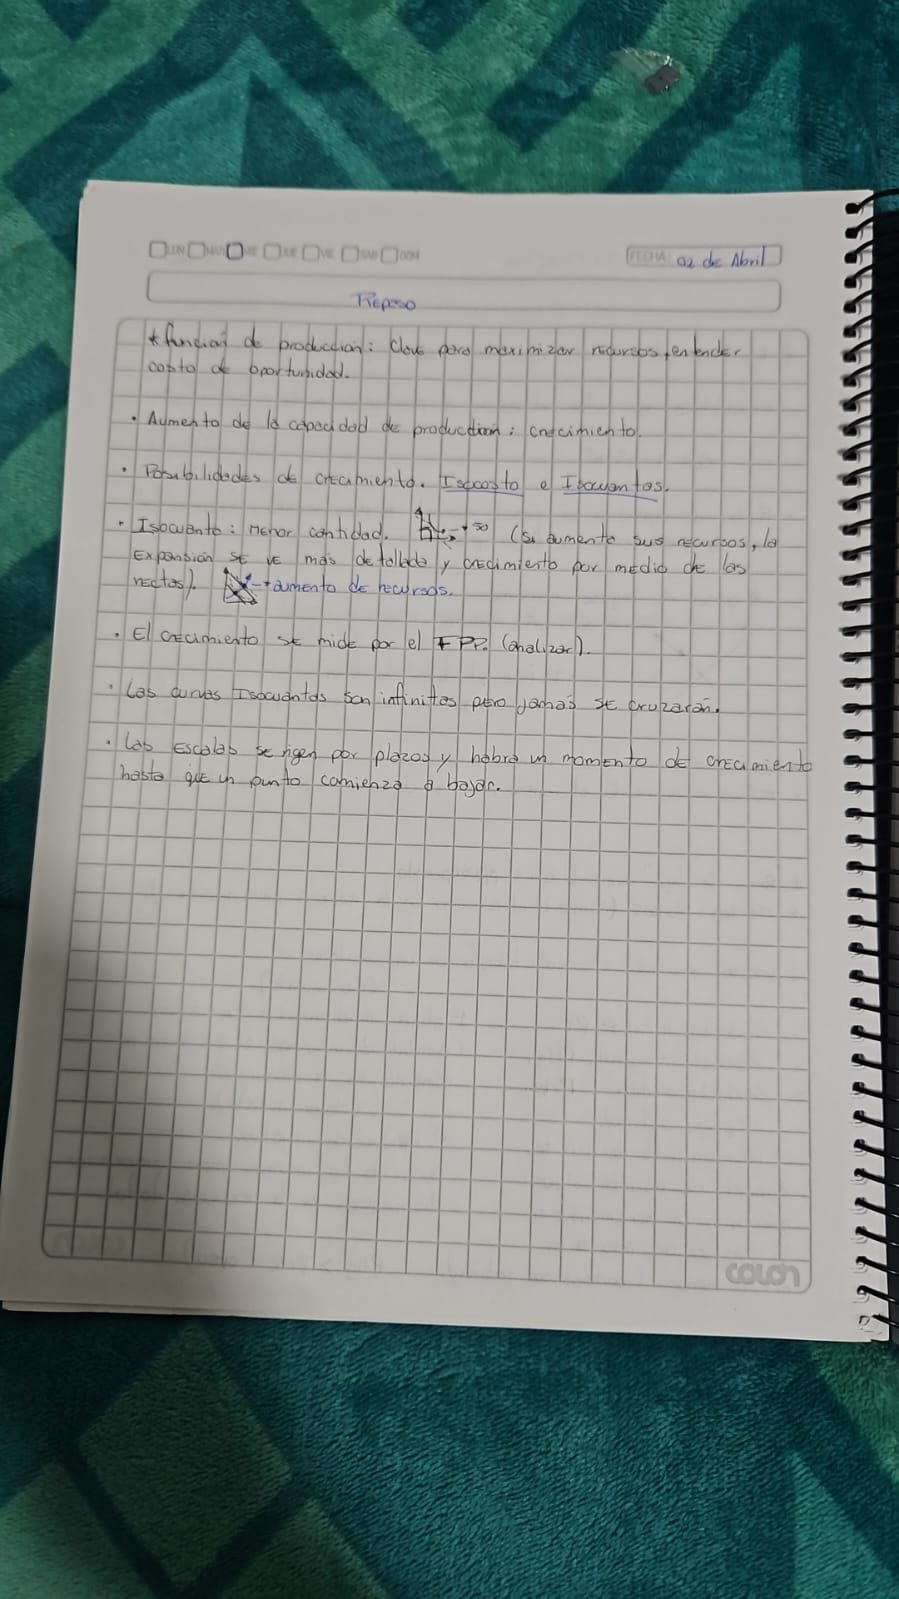 LUN MAR MIE JUE VIE SAB DOM
FECHA: 02 de Abril
Repaso
* función de producción: Clave para maximizar recursos, entender
costo de oportunidad.
• Aumento de la capacidad de production: crecimiento.
• Posibilidades de crecimiento. Isocosto e Isocuantas.
• Isocuanta: menor cantidad. → 50 (si aumenta sus recursos, la
Expansión se ve más detallada y crecimiento por medio de las
rectas). → aumento de recursos.
• El crecimiento se mide por el FPP. (analizar).
• Las curvas Isocuantas son infinitas pero jamás se cruzarán.
• Las Escalas se rigen por plazos y habrá un momento de crecimiento
hasta que un punto comienza a bajar.
colon